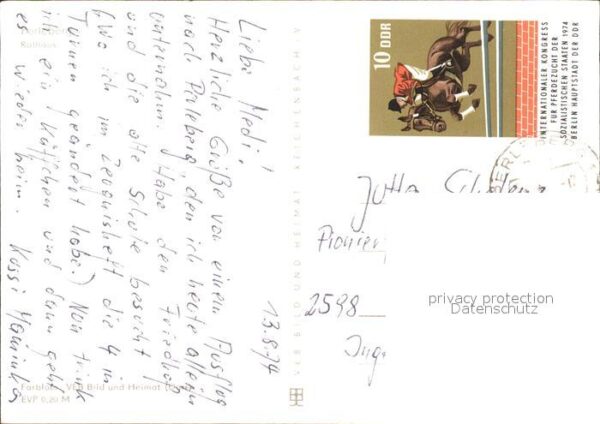 Perleberg
Rathaus
13.8.74
Liebe Medi!
Herzliche Grüße von einem Ausflug
nach Perleberg, den ich heute allein
unternahm. Habe den Friedhof
und die alte Schule besucht
(Wo ich im Zeugnisheft die 4 in
Turnen geändert habe.) Nun trink
ich ein Käffchen und dann geht
es wieder heim.
VEB Bild und Heimat
EVP 0,20 M
VEB BILD UND HEIMAT REICHENBACH V
10 DDR
INTERNATIONALER KONGRESS
FÜR PFERDEZUCHT DER
SOZIALISTISCHEN STAATEN 1974
BERLIN HAUPTSTADT DER DDR
BERL
Jutta
Pionier
2598
privacy protection
Datenschutz